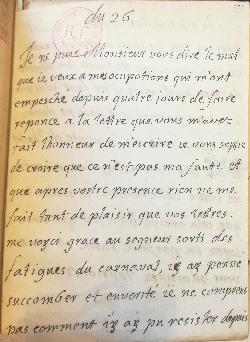 du 26
Je ne puis Monsieur vous dire le mal
que ie veux a mes ocupations qui m'ont
empesché depuis quatre jours de faire
reponce a la lettre que vous m'avez
fait l'honneur de m'escrire ie vous suplie
de croire que ce n'est pas ma faute et
que apres vostre presence rien ne me
fait tant de plaisir que vos lettres.
me voyci grace au seigneur sorti des
fatigues du carnaval, i'y ay pensse
succomber et en verité ie ne comprens
pas comment i'y ay pu resister depuis